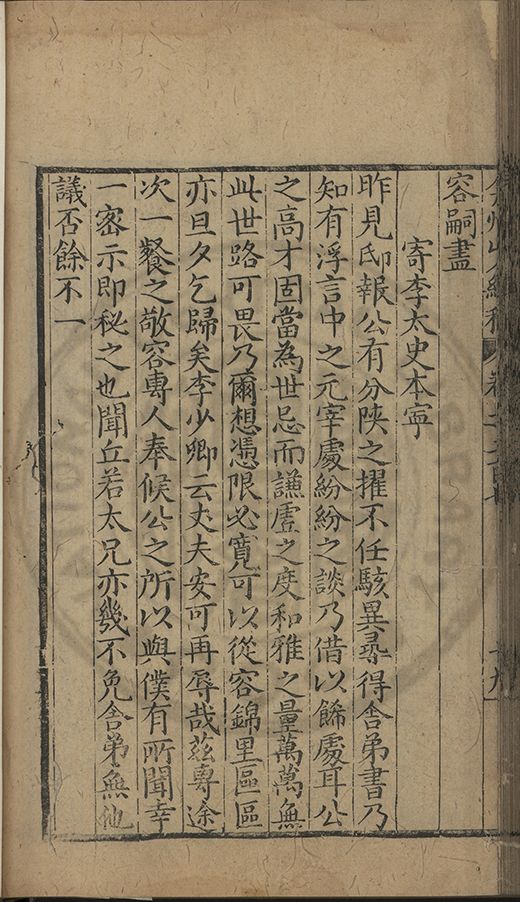 容嗣盡
寄李太史本寧
昨見邸報公有分陝之擢不任駭異尋得舍弟書乃
知有浮言中之元宰處紛紛之談乃借以餙處耳公
之高才固當為世忌而謙虛之度和雅之量萬萬無
此世路可畏乃爾想憑限必寬可以從容錦里區區
亦旦夕乞歸矣李少卿云丈夫安可再辱哉茲專途
次一餐之敬容專人奉候公之所以與僕有所聞幸
一密示即秘之也聞丘若太兄亦幾不免舍弟無他
議否餘不一